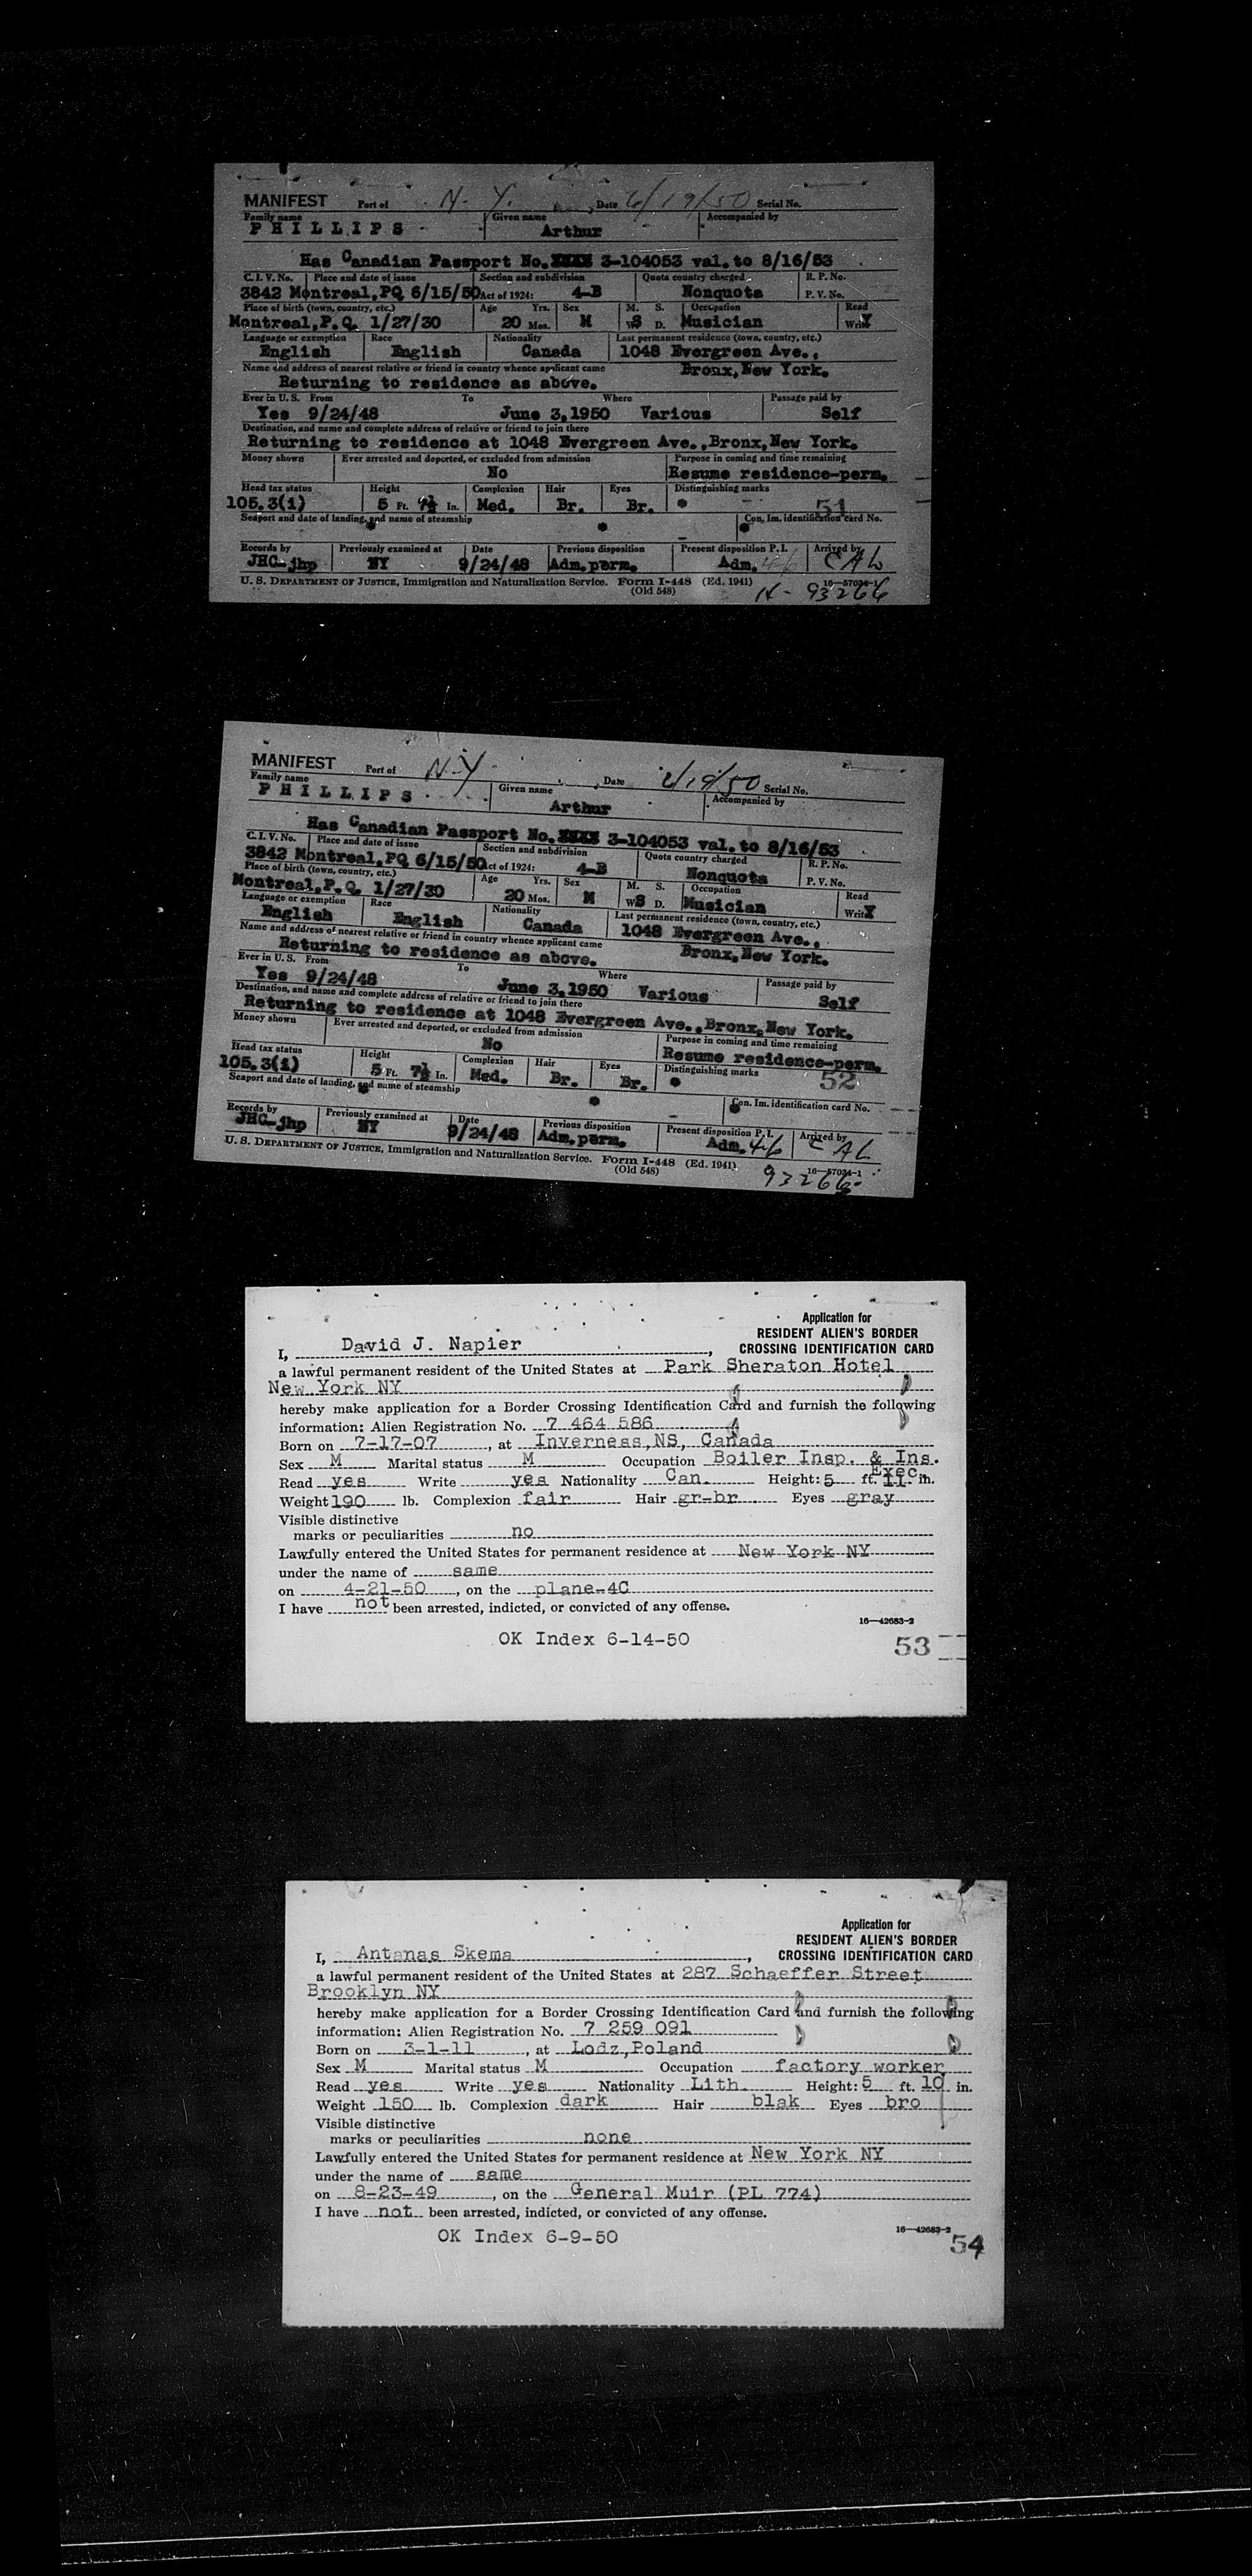 MANIFEST Port of N. Y. Date 6/19/50 Serial No.
Family name Given name Accompanied by
PHILLIPS Arthur
Has Canadian Passport No. XXXX 3-104053 val. to 8/16/53
C. I. V. No. Place and date of issue Section and subdivision Quota country charged R. P. No.
3842 Montreal, PQ 6/15/50 Act of 1924: 4-B Nonquota P. V. No.
Place of birth (town, country, etc.) Age Yrs. Sex M. S. Occupation Read
Montreal, P.Q. 1/27/30 20 Mos. M W S D. Musician Write Y
Language or exemption Race Nationality Last permanent residence (town, country, etc.)
English English Canada 1048 Evergreen Ave.,
Name and address of nearest relative or friend in country whence applicant came Bronx, New York.
Returning to residence as above.
Ever in U. S. From To Where Passage paid by
Yes 9/24/48 June 3, 1950 Various Self
Destination, and name and complete address of relative or friend to join there
Returning to residence at 1048 Evergreen Ave., Bronx, New York.
Money shown Ever arrested and deported, or excluded from admission Purpose in coming and time remaining
No Resume residence-perm.
Head tax status Height Complexion Hair Eyes Distinguishing marks
105.3(i) 5 Ft. 7½ In. Med. Br. Br. 51
Seaport and date of landing, and name of steamship Con. Im. identification card No.
Records by Previously examined at Date Previous disposition Present disposition P. I. Arrived by
JHC-jhp NY 9/24/48 Adm. perm. Adm. 46 CAL
U. S. DEPARTMENT OF JUSTICE, Immigration and Naturalization Service. Form I-448 (Ed. 1941) 16—57034-1
(Old 548) N- 93266
MANIFEST Port of N.Y. Date 6/19/50 Serial No.
Family name Given name Accompanied by
PHILLIPS Arthur
Has Canadian Passport No. XXXX 3-104053 val. to 8/16/53
C. I. V. No. Place and date of issue Section and subdivision Quota country charged R. P. No.
3842 Montreal, PQ 6/15/50 Act of 1924: 4-B Nonquota P. V. No.
Place of birth (town, country, etc.) Age Yrs. Sex M. S. Occupation Read
Montreal, P.Q. 1/27/30 20 Mos. M W S D. Musician Write Y
Language or exemption Race Nationality Last permanent residence (town, country, etc.)
English English Canada 1048 Evergreen Ave.,
Name and address of nearest relative or friend in country whence applicant came Bronx, New York.
Returning to residence as above.
Ever in U. S. From To Where Passage paid by
Yes 9/24/48 June 3, 1950 Various Self
Destination, and name and complete address of relative or friend to join there
Returning to residence at 1048 Evergreen Ave., Bronx, New York.
Money shown Ever arrested and deported, or excluded from admission Purpose in coming and time remaining
No Resume residence-perm.
Head tax status Height Complexion Hair Eyes Distinguishing marks
105.3(i) 5 Ft. 7½ In. Med. Br. Br. 52
Seaport and date of landing, and name of steamship Con. Im. identification card No.
Records by Previously examined at Date Previous disposition Present disposition P. I. Arrived by
JHC-jhp NY 9/24/48 Adm. perm. Adm. 46 CAL
U. S. DEPARTMENT OF JUSTICE, Immigration and Naturalization Service. Form I-448 (Ed. 1941) 16—57034-1
(Old 548) 93266
Application for
RESIDENT ALIEN'S BORDER
I, David J. Napier, CROSSING IDENTIFICATION CARD
a lawful permanent resident of the United States at Park Sheraton Hotel
New York NY
hereby make application for a Border Crossing Identification Card and furnish the following
information: Alien Registration No. 7 464 586
Born on 7-17-07, at Inverness,NS, Canada
Sex M Marital status M Occupation Boiler Insp. & Ins.
Exec.
Read yes Write yes Nationality Can. Height: 5 ft. 11 in.
Weight 190 lb. Complexion fair Hair gr-br Eyes gray
Visible distinctive
marks or peculiarities no
Lawfully entered the United States for permanent residence at New York NY
under the name of same
on 4-21-50, on the plane-4C
I have not been arrested, indicted, or convicted of any offense.
16—42683-2
OK Index 6-14-50 53
Application for
RESIDENT ALIEN'S BORDER
I, Antanas Skema, CROSSING IDENTIFICATION CARD
a lawful permanent resident of the United States at 287 Schaeffer Street
Brooklyn NY
hereby make application for a Border Crossing Identification Card and furnish the following
information: Alien Registration No. 7 259 091
Born on 3-1-11, at Lodz,Poland
Sex M Marital status M Occupation factory worker
Read yes Write yes Nationality Lith Height: 5 ft. 10 in.
Weight 150 lb. Complexion dark Hair blak Eyes bro
Visible distinctive
marks or peculiarities none
Lawfully entered the United States for permanent residence at New York NY
under the name of same
on 8-23-49, on the General Muir (PL 774)
I have not been arrested, indicted, or convicted of any offense.
16—42683-2
OK Index 6-9-50 54